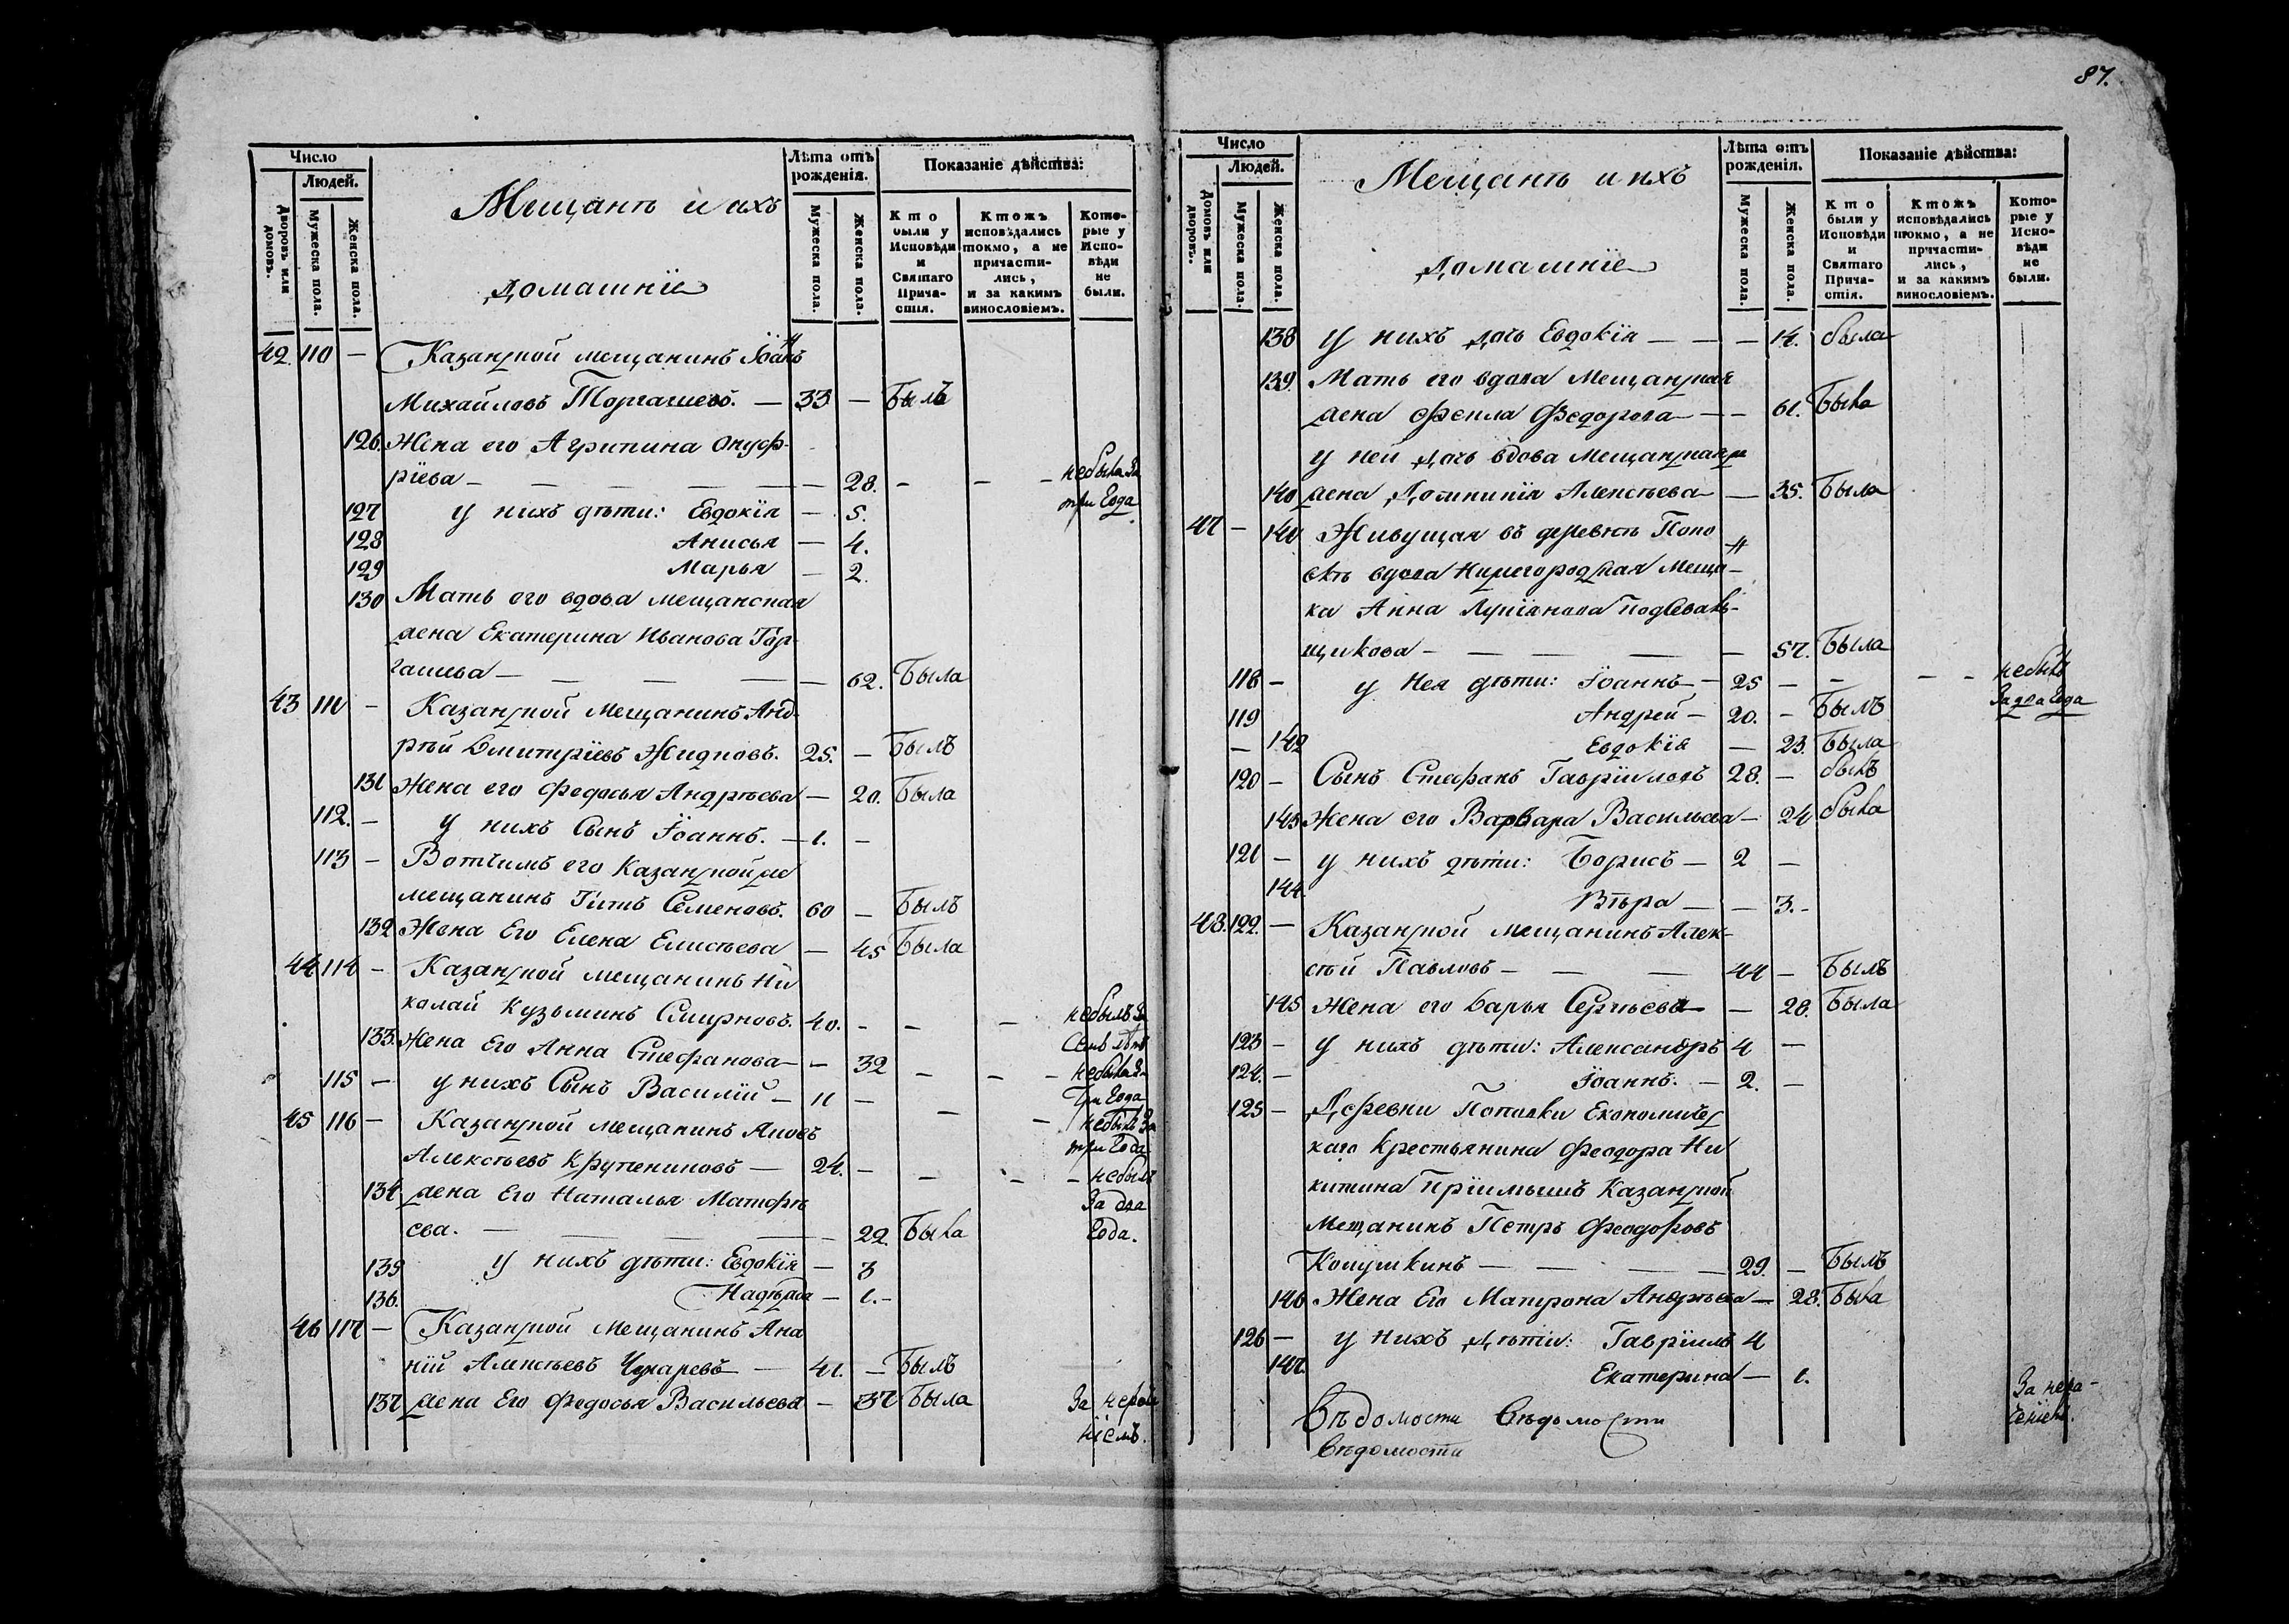 87.
Число
Людей.
Дворовъ или домовъ.
Мужеска пола.
Женска пола.
Мещанъ и ихъ
домашніе
Лѣта отъ рожденія.
Мужеска пола.
Женска пола.
Показаніе дѣйства:
Кто были у Исповѣди и Святаго Прича-стія.
Ктожъ исповѣдались токмо, а не причасти-лись, и за какимъ винословіемъ.
Кото-рые у Испо-вѣди не были.
42. 110 — Казанской мещанинъ Іоанъ
Михайловъ Торгашевъ. — 33 — Былъ
126. Жена его Агрипина Онуф-
ріева — — — — 28. - - - небыла За
три Года
127 у нихъ дѣти: Евдокія — 5.
128 Анисья — 4.
129 Марья — 2.
130 Мать его вдова мещанская
жена Екатерина Иванова Тор-
гашева — — — — 62. Была
43 111 — Казанской Мещанинъ Анд-
рѣй Дмитріевъ Жидковъ. 25. — Былъ
131 Жена его Федосья Андрѣева — 20. Была
112. — у нихъ Сынъ Іоаннъ. — 1. —
113 — Вотчимъ его Казанской же
мещанинъ Титъ Семеновъ. 60 — Былъ
132 Жена Его Елена Елисѣева — 45 Была
44 114 — Казанской мещанинъ Ни
колай Кузьминъ Смирновъ. 40. - — — небылъ За
Семь лѣтъ
133. Жена Его Анна Стефанова — 32 — — — небыла За
Три Года
115 — у нихъ Сынъ Василій — 11 —
45 116 — Казанской мещанинъ Яковъ — — небылъ За
три Года
Алексѣевъ Крупениковъ — 24. —
134 жена Его Наталья Матфѣ — — — небыла
За два
Года.
ева. — — — — 22. Была
135 у нихъ дѣти: Евдокія — 3
136. Надѣжда — 1. -
46 117 — Казанской Мещанинъ Ана
ній Алексѣевъ Чухаревъ — 41. — Былъ
137 жена Его Федосья Васильева — 37 Была
За нераде
ніемъ.
Число
Людей.
Домовъ или дворовъ.
Мужеска пола.
Женска пола.
Мещанъ и ихъ
домашніе
Лѣта отъ рожденія.
Мужеска пола.
Женска пола.
Показаніе дѣйства:
Кто были у Исповѣди и Святаго Прича-стія.
Ктожъ исповѣдались токмо, а не причасти-лись, и за какимъ винословіемъ.
Кото-рые у Испо-вѣди не были.
138 у нихъ дочь Евдокія — — — 14. была
139. Мать его вдова Мещанская
жена Фекла Федорова — — 61. Была
у ней дочь вдова мещанская
140 жена Домникія Алексѣева — 35. Была
47 — 141 Живущая въ деревнѣ Попо
вкѣ вдова Нижегородская Мещан-
ка Анна Лукіанова Подсеваль-
щикова — — — — — 57. Была
118 — у Нея дѣти: Іоаннъ — 25 — - - - небылъ
За два Года
119 Андрей — 20. - Былъ
— 142 Евдокія — 23. Была
120 — Сынъ Стефанъ Гавріиловъ 28. — былъ
143 Жена его Варвара Васильева — 24 была
121 — у нихъ дѣти: Борисъ — 2 —
144. Вѣра — — 3. -
48. 122. — Казанской мещанинъ Алек-
сѣй Павловъ — — — 44 — Былъ
145 Жена его Дарья Сергѣева — — 28. Была
123 — у нихъ дѣти: Александръ 4 —
124. — Іоаннъ. — 2. —
125 — Деревни Поповки Економичес
каго Крестьянина Феодора Ни
китина Пріимышъ Казанской
Мещанинъ Петръ Феодоровъ
Кокушкинъ — — — — 29. — Былъ
146 Жена Его Матрона Андрѣева — 28. Была
126 — у нихъ дѣти: Гавріилъ 4
147. Екатерина — 1.
За нера-
деніемъ.
Вѣдомости Вѣдомости
Вѣдомости